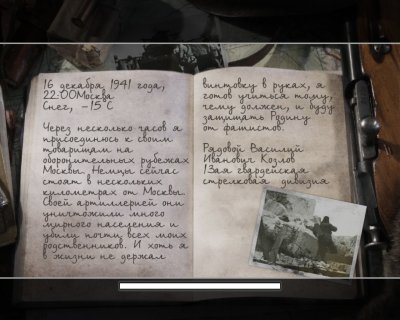 16 декабря 1941 года,
22:00Москва
Снег, -15°С
Через несколько часов я
присоединюсь к своим
товарищам на
оборонительных рубежах
Москвы. Немцы сейчас
стоят в нескольких
километрах от Москвы.
Своей артиллерией они
уничтожили много
мирного населения и
убили почти всех моих
родственников. И хоть я
в жизни не держал
винтовку в руках, я
готов учиться тому,
чему должен, и буду
защищать Родину
от фашистов.
Рядовой Василий
Иванович Козлов
13ая гвардейская
стрелковая дивизия